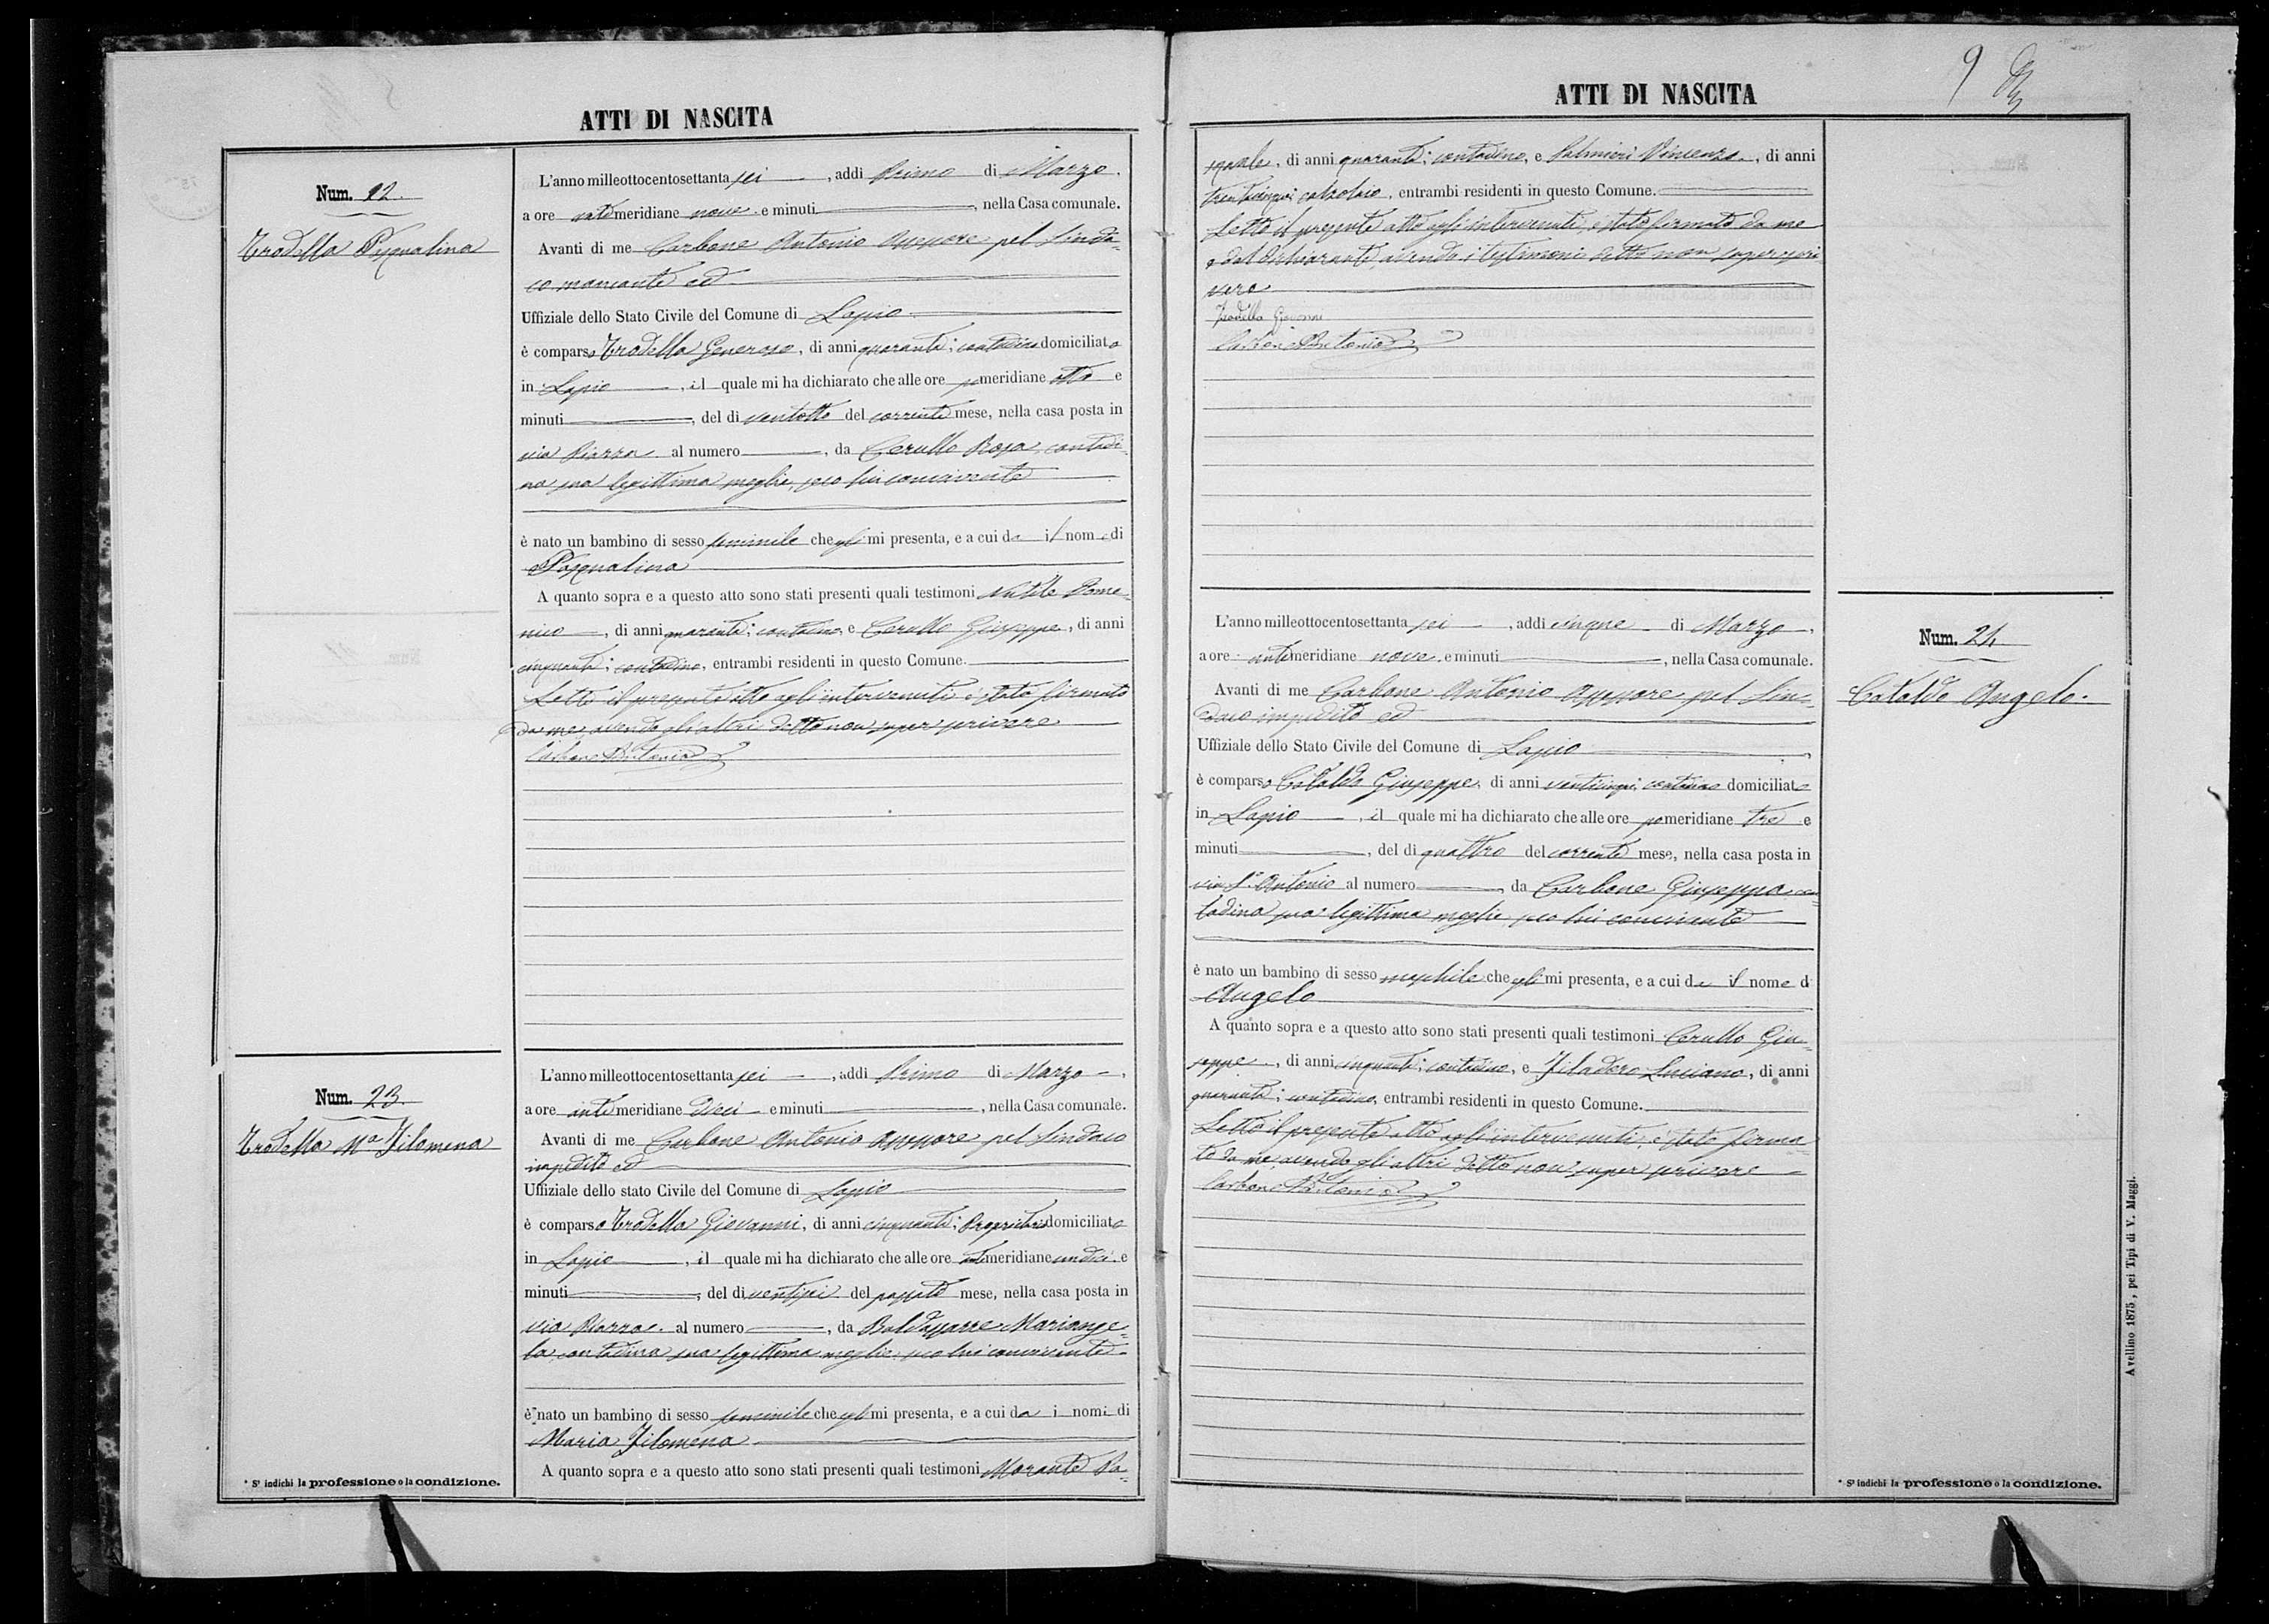 ATTI DI NASCITA
Num. 22.
Trodella Pasqualina
L'anno milleottocentosettanta sei, addi Primo di Marzo.
a ore antimeridiane nove e minuti, nella Casa comunale.
Avanti di me Carbone Antonio Assessore pel Sinda-
co mancante ed
Uffiziale dello Stato Civile del Comune di Lapio
è comparso Trodella Generoso, di anni quaranta; contadino domiciliato
in Lapio, il quale mi ha dichiarato che alle ore pomeridiane otto e
minuti, del dì ventotto del corrente mese, nella casa posta in
via Piazza al numero, da Cerullo Rosa contadi-
na sua legittima moglie, seco lui convivente
è nato un bambino di sesso feminile che egli mi presenta, e a cui da il nome di
Pasqualina
A quanto sopra e a questo atto sono stati presenti quali testimoni Dome-
nico, di anni quaranta; contadino, e Cerullo Giuseppe, di anni
cinquanta; contadino, entrambi residenti in questo Comune.
Letto il presente atto agli intervenuti è stato firmato
da me, avendo gli altri detto non saper scrivere
Carbone Antonio
Num. 23.
Trodella Ma Filomena
L'anno milleottocentosettanta sei, addi Primo di Marzo,
a ore antimeridiane dieci e minuti, nella Casa comunale.
Avanti di me Carbone Antonio Assessore pel Sindaco
impedito ed
Uffiziale dello stato Civile del Comune di Lapio
è comparso Trodella Giovanni, di anni cinquanta; Proprietario domiciliato
in Lapio, il quale mi ha dichiarato che alle ore antimeridiane undici e
minuti, del dì ventisei del passato mese, nella casa posta in
via Piazza al numero, da Baldassarre Mariange-
la, contadina sua legittima moglie, seco lui convivente
è nato un bambino di sesso feminile che egli mi presenta, e a cui da i nomi di
Maria Filomena
A quanto sopra e a questo atto sono stati presenti quali testimoni Morante Pa-
* Si indichi la professione o la condizione.
ATTI DI NASCITA
9
squale, di anni quaranta; contadino, e Palmieri Vincenzo, di anni
trentacinque; calzolaio, entrambi residenti in questo Comune.
Letto il presente atto agli intervenuti, è stato firmato da me
e dal dichiarante, avendo i testimoni detto non saper scri
vere
Trodella Giovanni
Carbone Antonio
L'anno milleottocentosettanta sei, addi cinque di Marzo,
a ore antimeridiane nove e minuti, nella Casa comunale.
Avanti di me Carbone Antonio Assessore pel Sin-
daco impedito ed
Uffiziale dello Stato Civile del Comune di Lapio
è comparso Cataldo Giuseppe, di anni venticinque; contadino domiciliato
in Lapio, il quale mi ha dichiarato che alle ore pomeridiane tre e
minuti, del dì quattro del corrente mese, nella casa posta in
via S. Antonio al numero, da Carbone Giuseppa con
tadina sua legittima moglie, seco lui convivente
è nato un bambino di sesso maschile che egli mi presenta, e a cui da il nome d
Angelo
A quanto sopra e a questo atto sono stati presenti quali testimoni Cerullo Giu-
seppe, di anni cinquanta; contadino, e Filadoro Luciano, di anni
quaranta; contadino, entrambi residenti in questo Comune.
Letto il presente atto agli intervenuti, è stato firma-
to da me, avendo gli altri detto non saper scrivere
Carbone Antonio
Num. 24
Cataldo Angelo.
* Si indichi la professione o la condizione.
Avellino 1875, pei Tipi di V. Maggi.